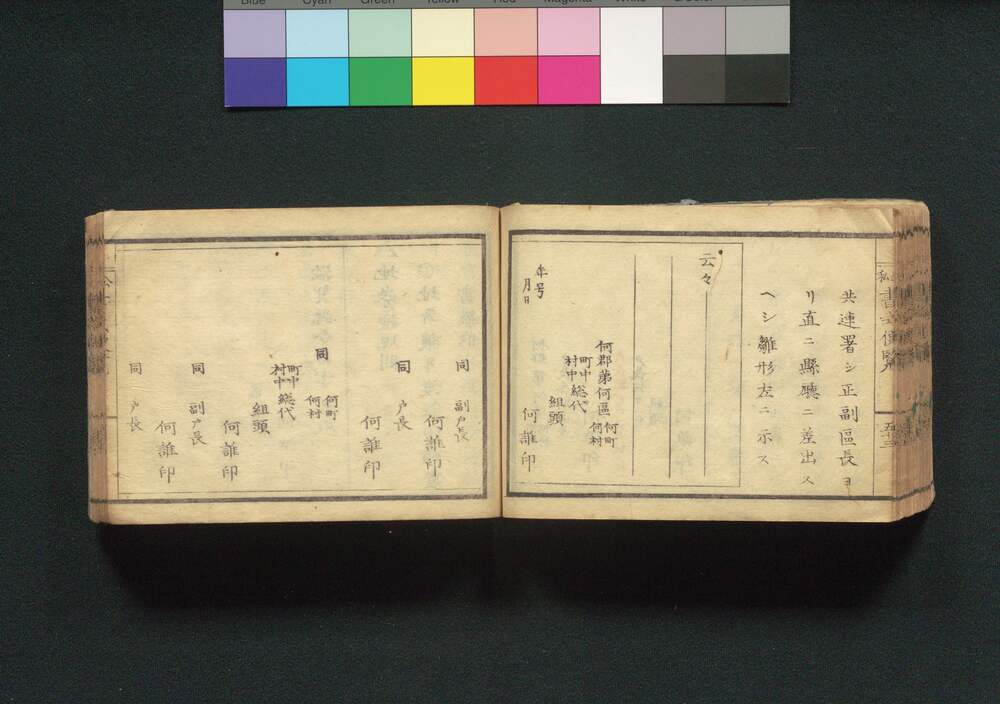 Blue Cyan Green Yellow Red Magenta White
共連署シ正副區長ヨ
リ直ニ縣聴ニ差出ス
ヘシ雛形左ニ示ス
云々
何郡第何區 何町 何村
町中 村中 総代
組頭
何誰印
年号
月日
同 副戸長
何誰印
同 戸長
何誰印
同 何町 何村
町中 村中 総代
組頭
何誰印
同 副戸長
何誰印
同 戸長